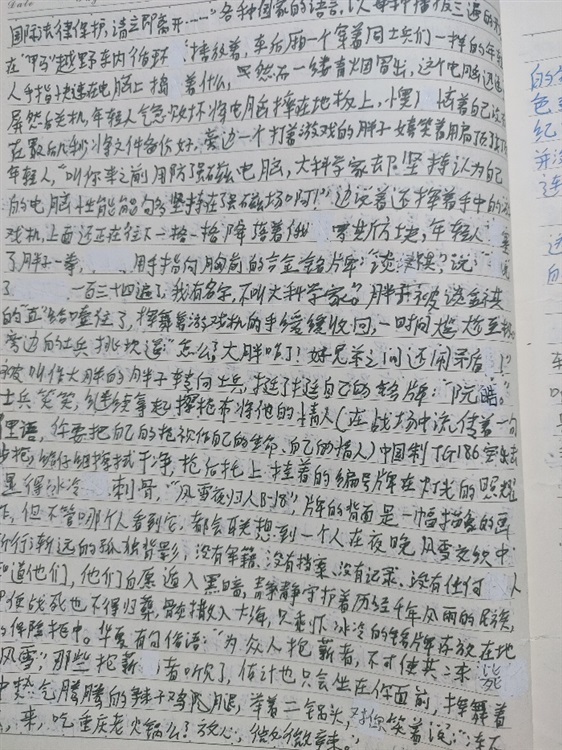 国际法律保护,请立即离开……"各种国家的语言,以每种播报三遍的形
在"甲子"越野车内循环 播放着,车后厢一个穿着同士兵们一样的年轻
人手指快速在电脑上捣 着什么,突然在一缕青烟冒出,这个电脑迅速
屏然后关机,年轻人气急败坏将电脑摔在地板上,
在最后几秒将文件备份好,旁边一个打着游戏的胖子嬉笑着用肩
年轻人,"叫你来之前用防强磁电脑,大科学家却坚持认为自己
的电脑性能能够坚持住强磁场啊!"边说着还挥着手中的游
戏机,上面还正在往下一格一格降落着俄 罗斯方块,年轻人
了胖子一拳, 用手指向胸前的合金铭牌:
了 一百三十四遍了,我有名字,不叫大科学家。"胖子被这
的 给噎住了,挥舞着游戏机的手缓缓收回,一时间尴尬至极
旁边的士兵挑坎道"怎么了大胖哈了!好兄弟之间还闹矛盾!?
被叫作大胖的胖子转向士兵,挺了挺自己的铭牌:"阮皓。"
士兵笑笑,继续拿起擦抢布将他的情人(在战场中流传着一句
俚语,你要把自己的抢视作自己的生命、自己的情人)中国制TG186突击
步抢,给仔细擦拭干净,抢后托上挂着的编号牌在灯光的照耀
显得冰冷 刺骨,"风雪夜归人B-18"片牌的背面是一幅描金的画
但不管哪个人看到它,都会联想到一个人在夜晚风雪交织中
前行渐远的孤独背影;没有军籍、没有档案、没有记录、没有任何 人
知道他们,他们自愿遁入黑暗,静静守护着历经千年风雨的民族,
即使战死也不得归葬,骨灰撒入大海,只剩下冰冷的铭牌存放在地
的保险柜中。华夏有句俗语:"为众人抱薪者,不可使其 冻毙
风雪",那些抱薪 者听了,估计也只会坐在你面前,挥舞着
中热气腾腾的辣子鸡腿,举着二锅头,对你笑着说:"冻不
,来,吃重庆老火锅么?放心,他们微辣。"